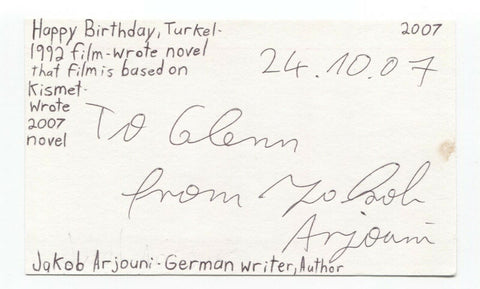 Happy Birthday, Turke!- 2007
1992 film-wrote novel
that film is based on
24.10.07
Kismet-
Wrote
2007
novel
To Glenn
from Jakob
Arjouni
Jakob Arjouni-German writer, Author